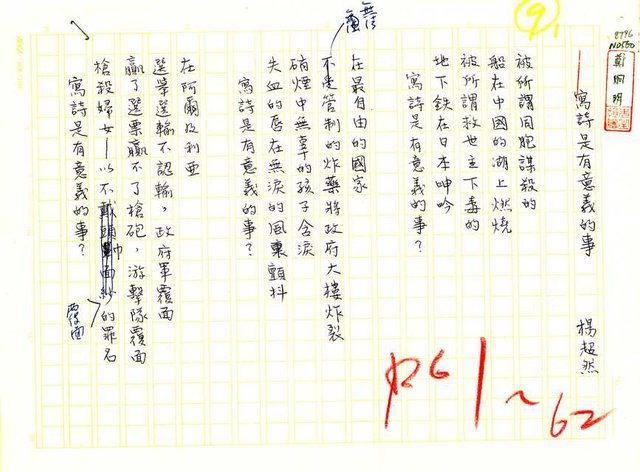 9
8796
NO5BO
鄭烱明
——寫詩是有意義的事
楊超然
被所謂同胞謀殺的
船在中國的湖上燃燒
被所謂救世主下毒的
地下鉄在日本呻吟
寫詩是有意義的事？
在最自由的國家
不受管制的炸藥將政府大樓炸裂
硝煙中無辜的孩子含淚
失血的唇在無淚的風裏顫抖
寫詩是有意義的事？
在阿爾及利亞
選舉選輸不認輸，政府軍覆面
贏了選票贏不了槍砲，游擊隊覆面
槍殺婦女—以不戴頭巾面紗的罪名
覆面
寫詩是有意義的事？
P61～62